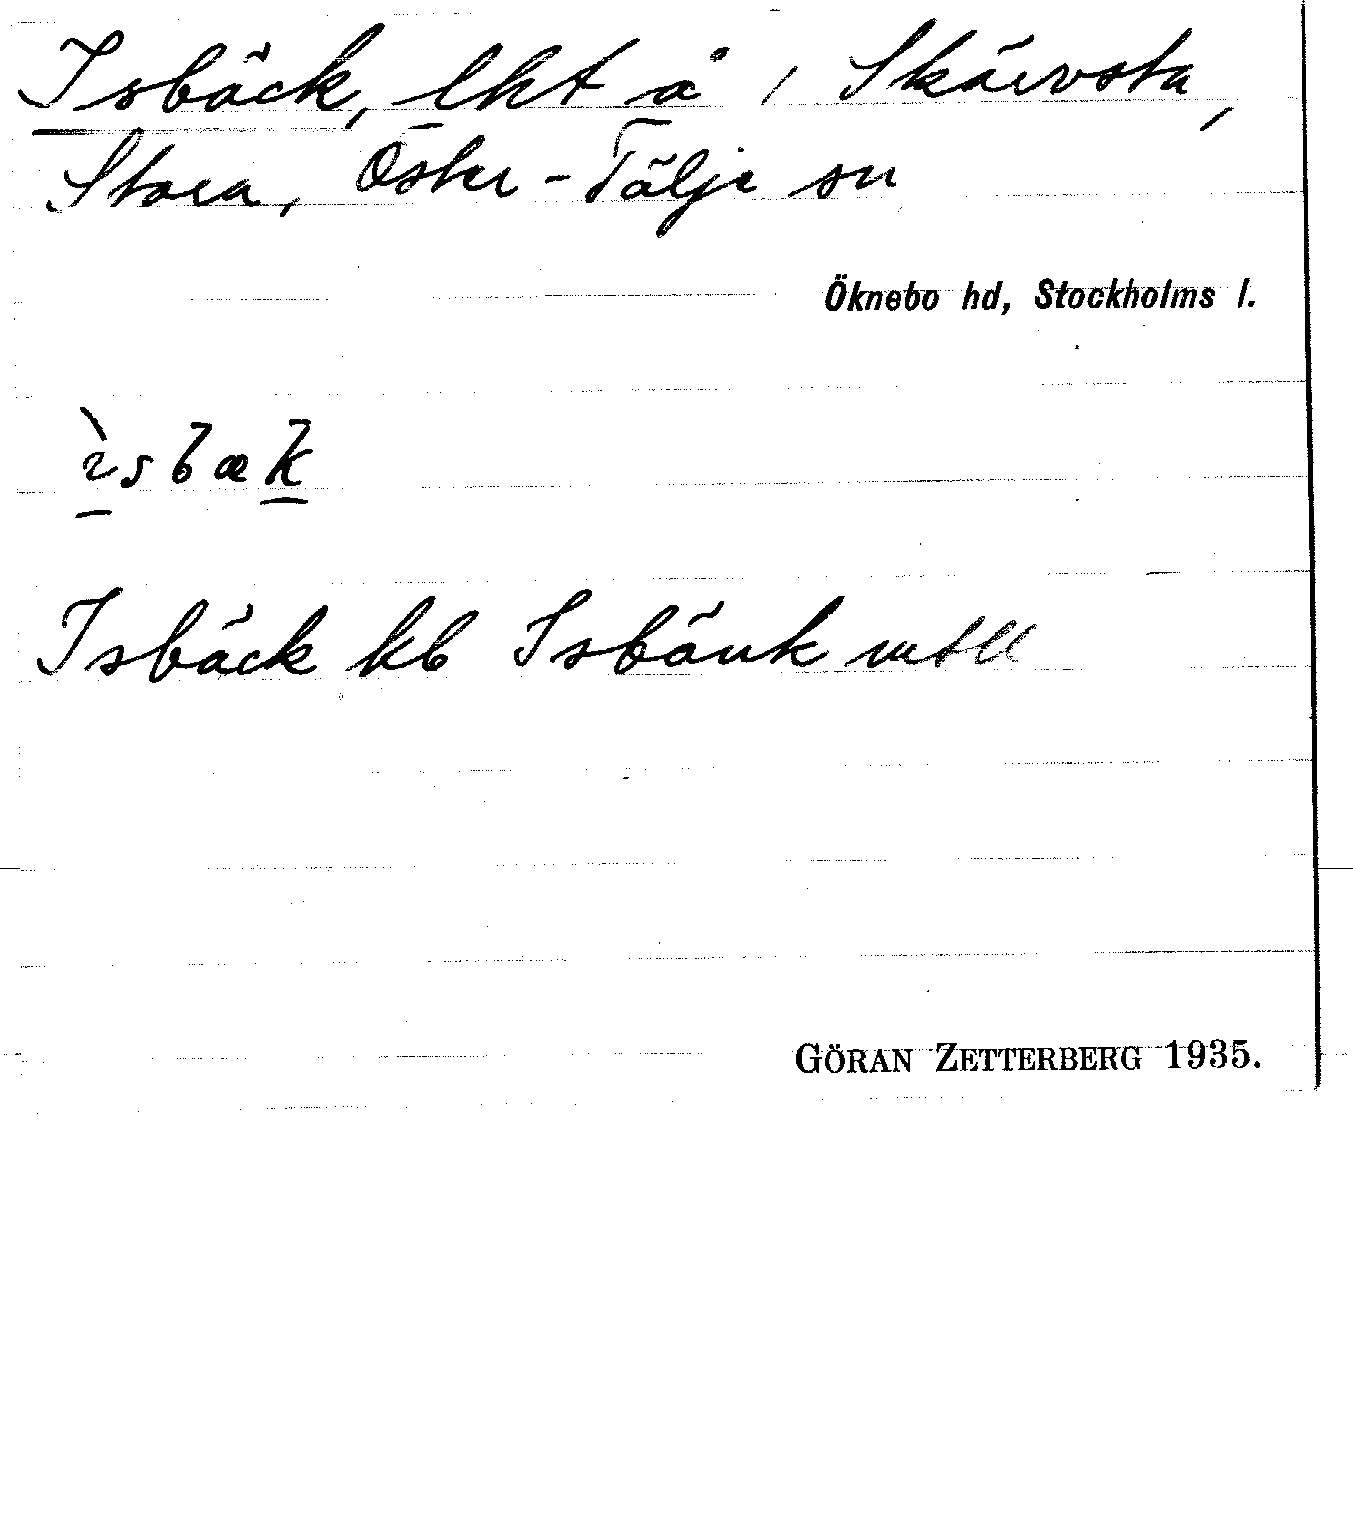 Isbäck, lht å / Skärvsta,
Stora, Öster-Tälje sn
Öknebo hd, Stockholms l.
ìsbæk
Isbäck kb Isbänk
GÖRAN ZETTERBERG 1935.